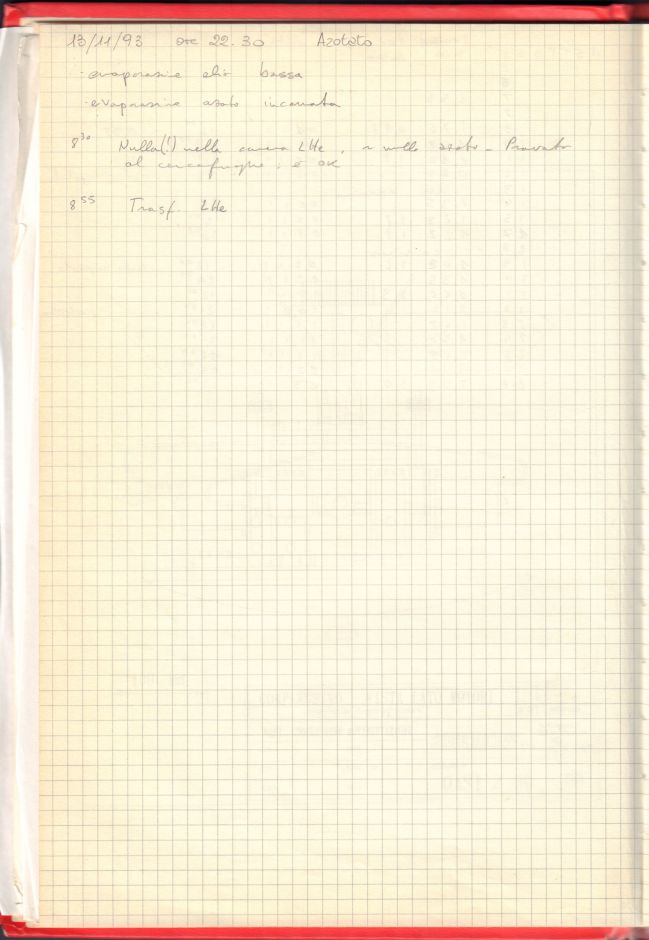 13/11/93 ore 22.30 Azotato
- evaporazione elio bassa
- evaporazione azoto incamiata
8³⁰ Nulla(!) nella camera LHe, nulla azoto - Provato
al cercafughe, è OK
8⁵⁵ Trasf. LHe